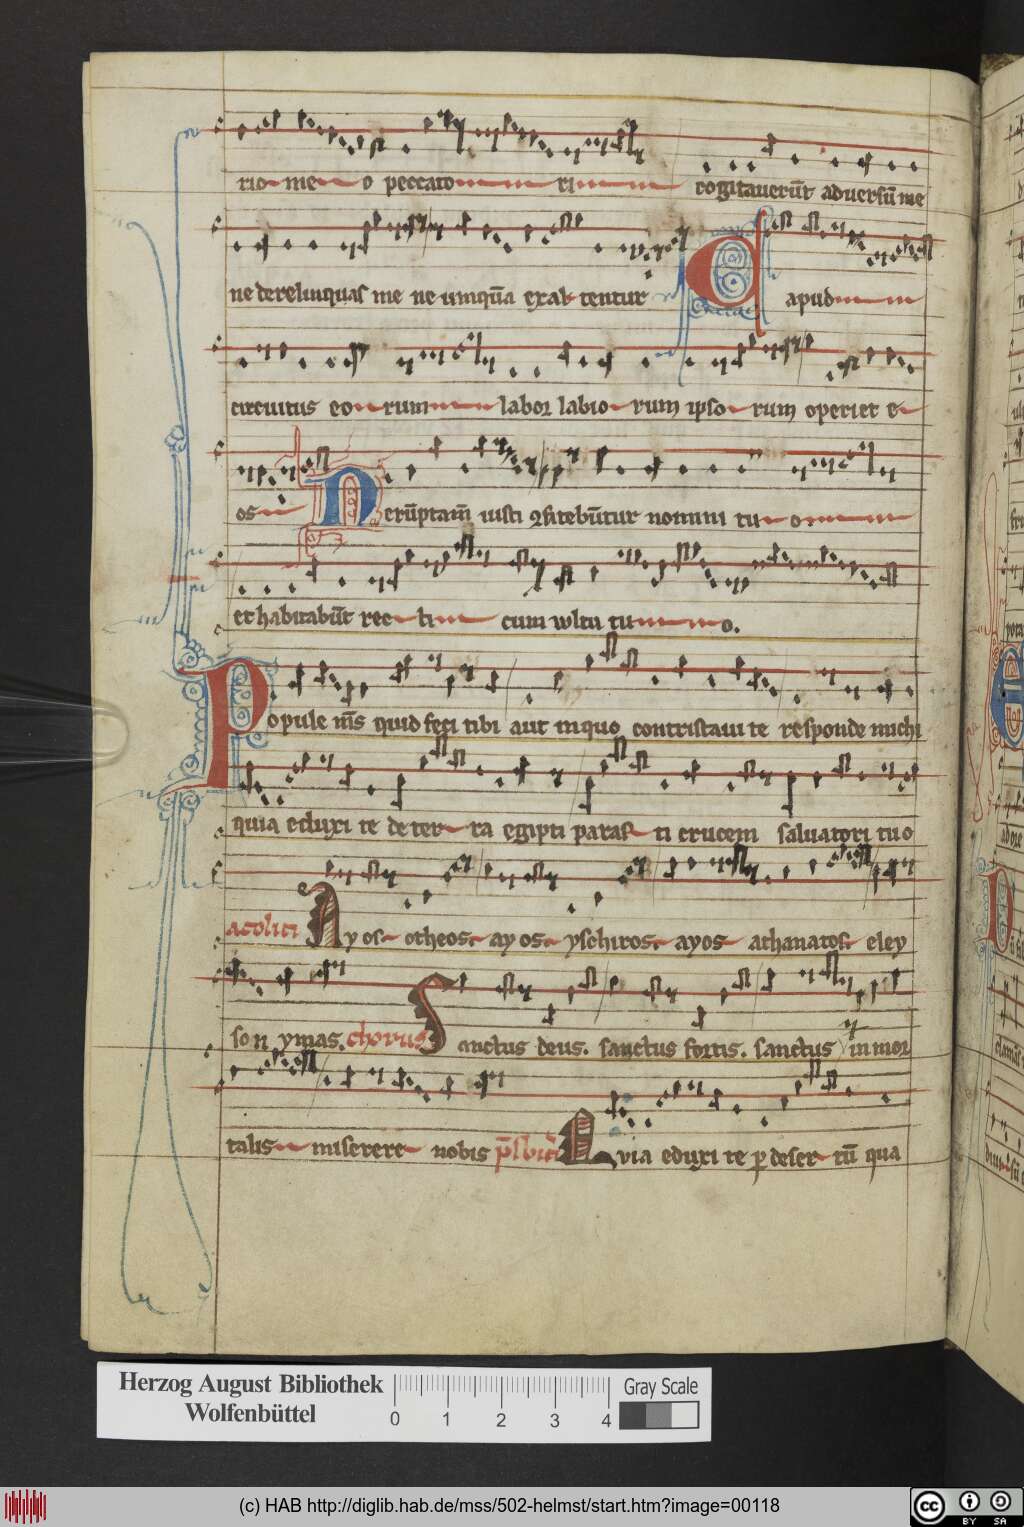 rio me o peccato ri cogitauerūt aduersū me
ne derelinquas me ne umquā exal tentur Caput
circuitus eo rum labor labio rum ipso rum operiet e
os Uerūptam̄ iusti ꝯfitebūtur nomini tu o
et habitabūt rec ti cum wltu tu o.
Popule m̄s quid feci tibi aut inquo contristaui te responde michi
quia eduxi te de ter ra egipti paras ti crucem saluatori tuo
acoliti Ayos otheos ayos yschiros ayos athanatos eley
son ymas. chorus Sanctus deus. sanctus fortis. sanctus in mor
talis miserere nobis Quia eduxi te ꝑ deser tū qua
Herzog August Bibliothek
Wolfenbüttel
0 1 2 3 4
Gray Scale
(c) HAB http://diglib.hab.de/mss/502-helmst/start.htm?image=00118
cc BY SA